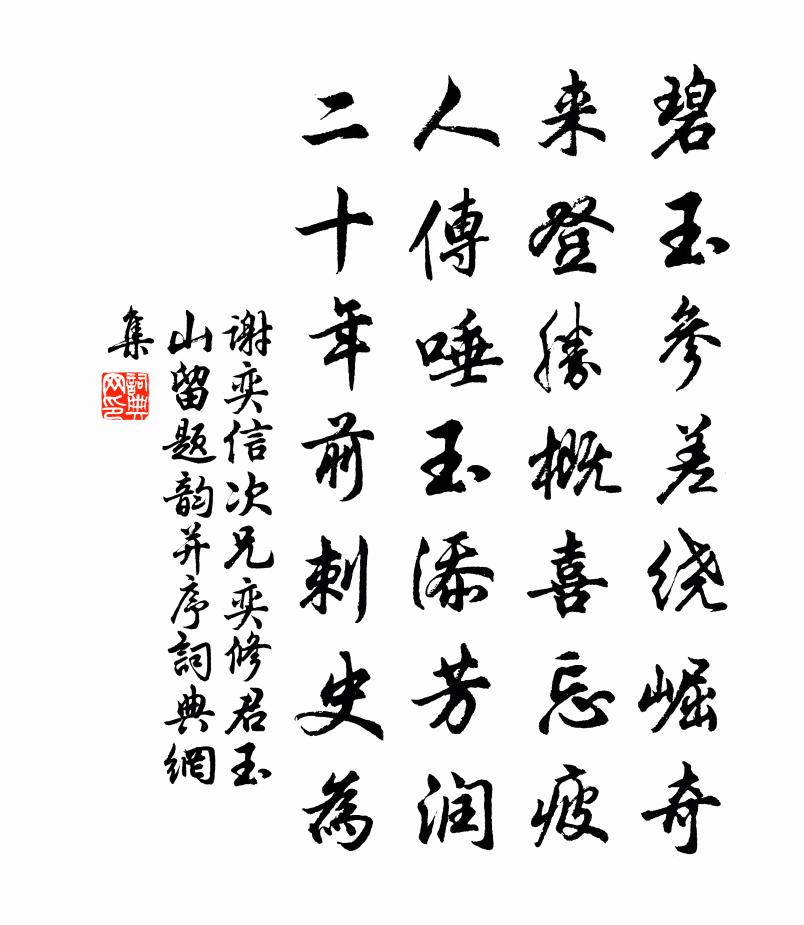 碧玉參差绕崛奇
来登勝概喜忘疲
人傳唾玉添芳润
二十年前刺史為
谢奕信次兄奕修君玉
山留题韵并序詞典網
集
詞典网印